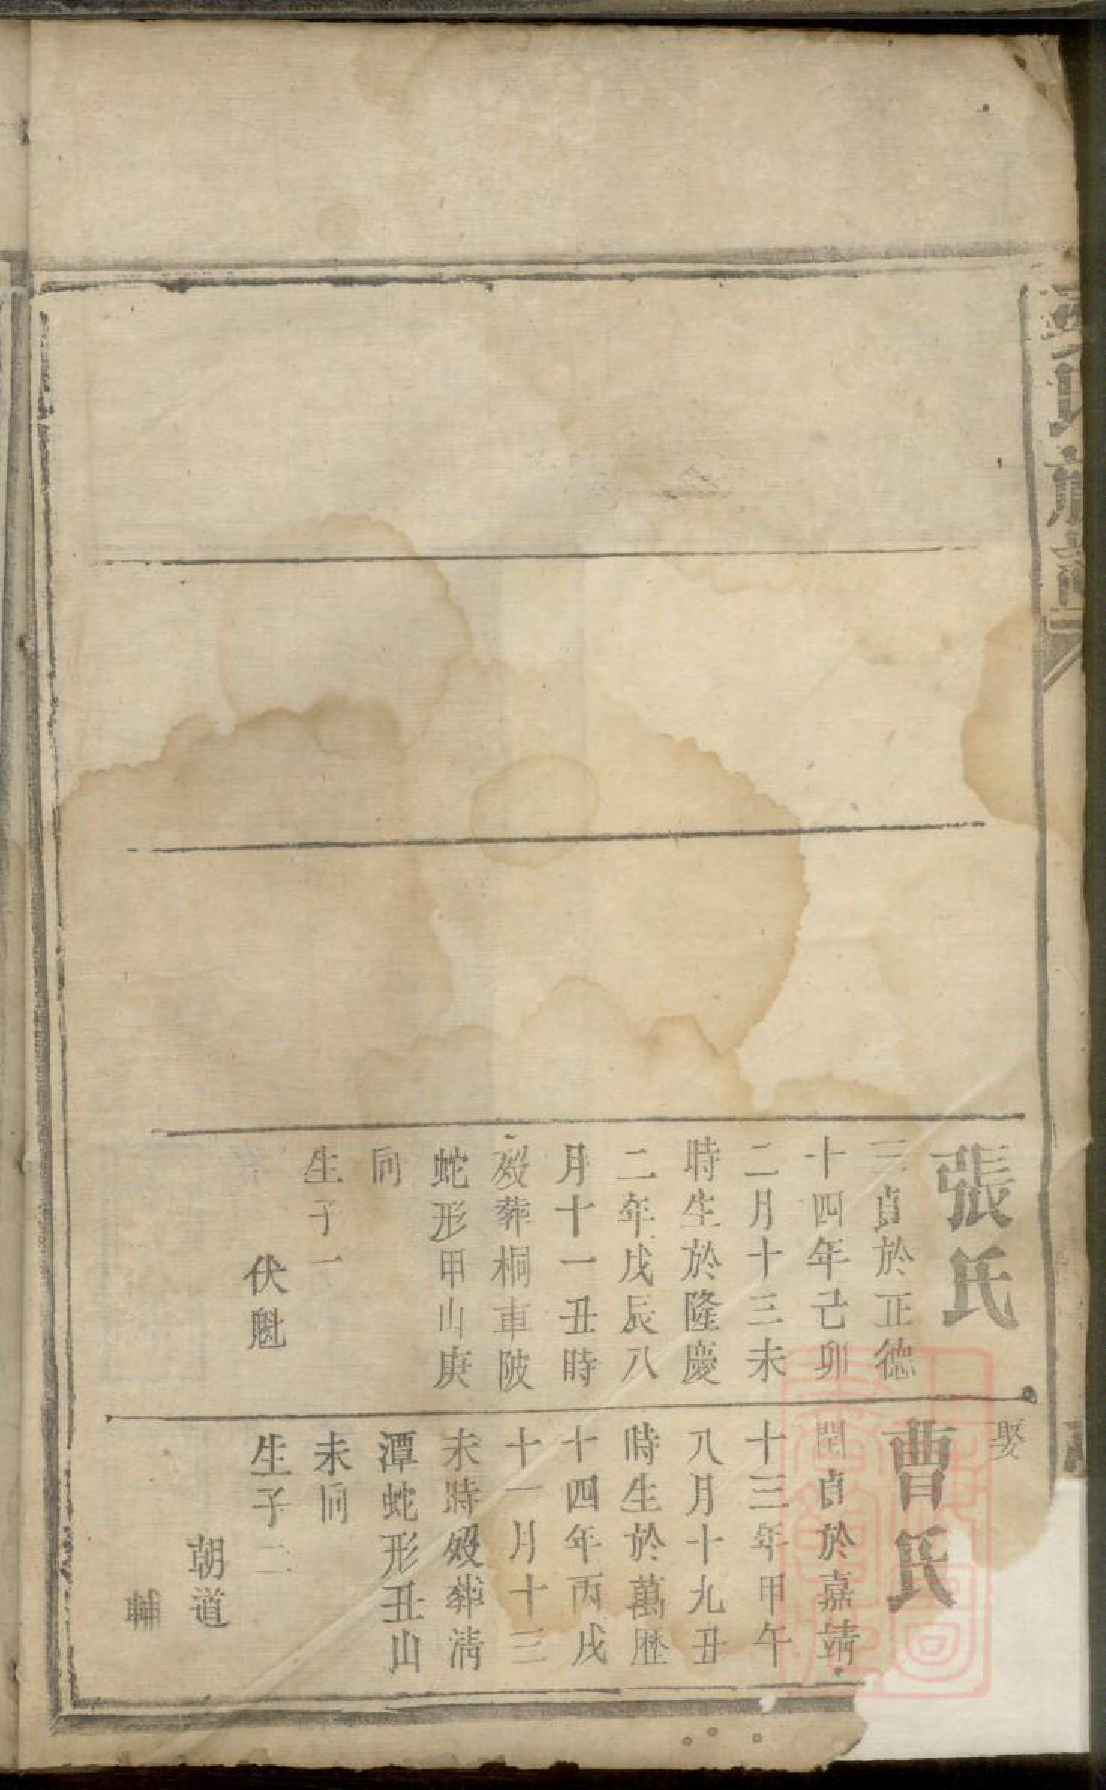 氏族譜
張氏
三貞於正德
十四年己卯
二月十三未
時生於隆慶
二年戊辰八
月十一丑時
歿葬桐車陂
蛇形甲山庚
向
生子一
伏魁
娶
曹氏
閏貞於嘉靖
十三年甲午
八月十九丑
時生於萬歴
十四年丙戌
十一月十三
未時歿葬清
潭蛇形丑山
未向
生子二
朝道
輔